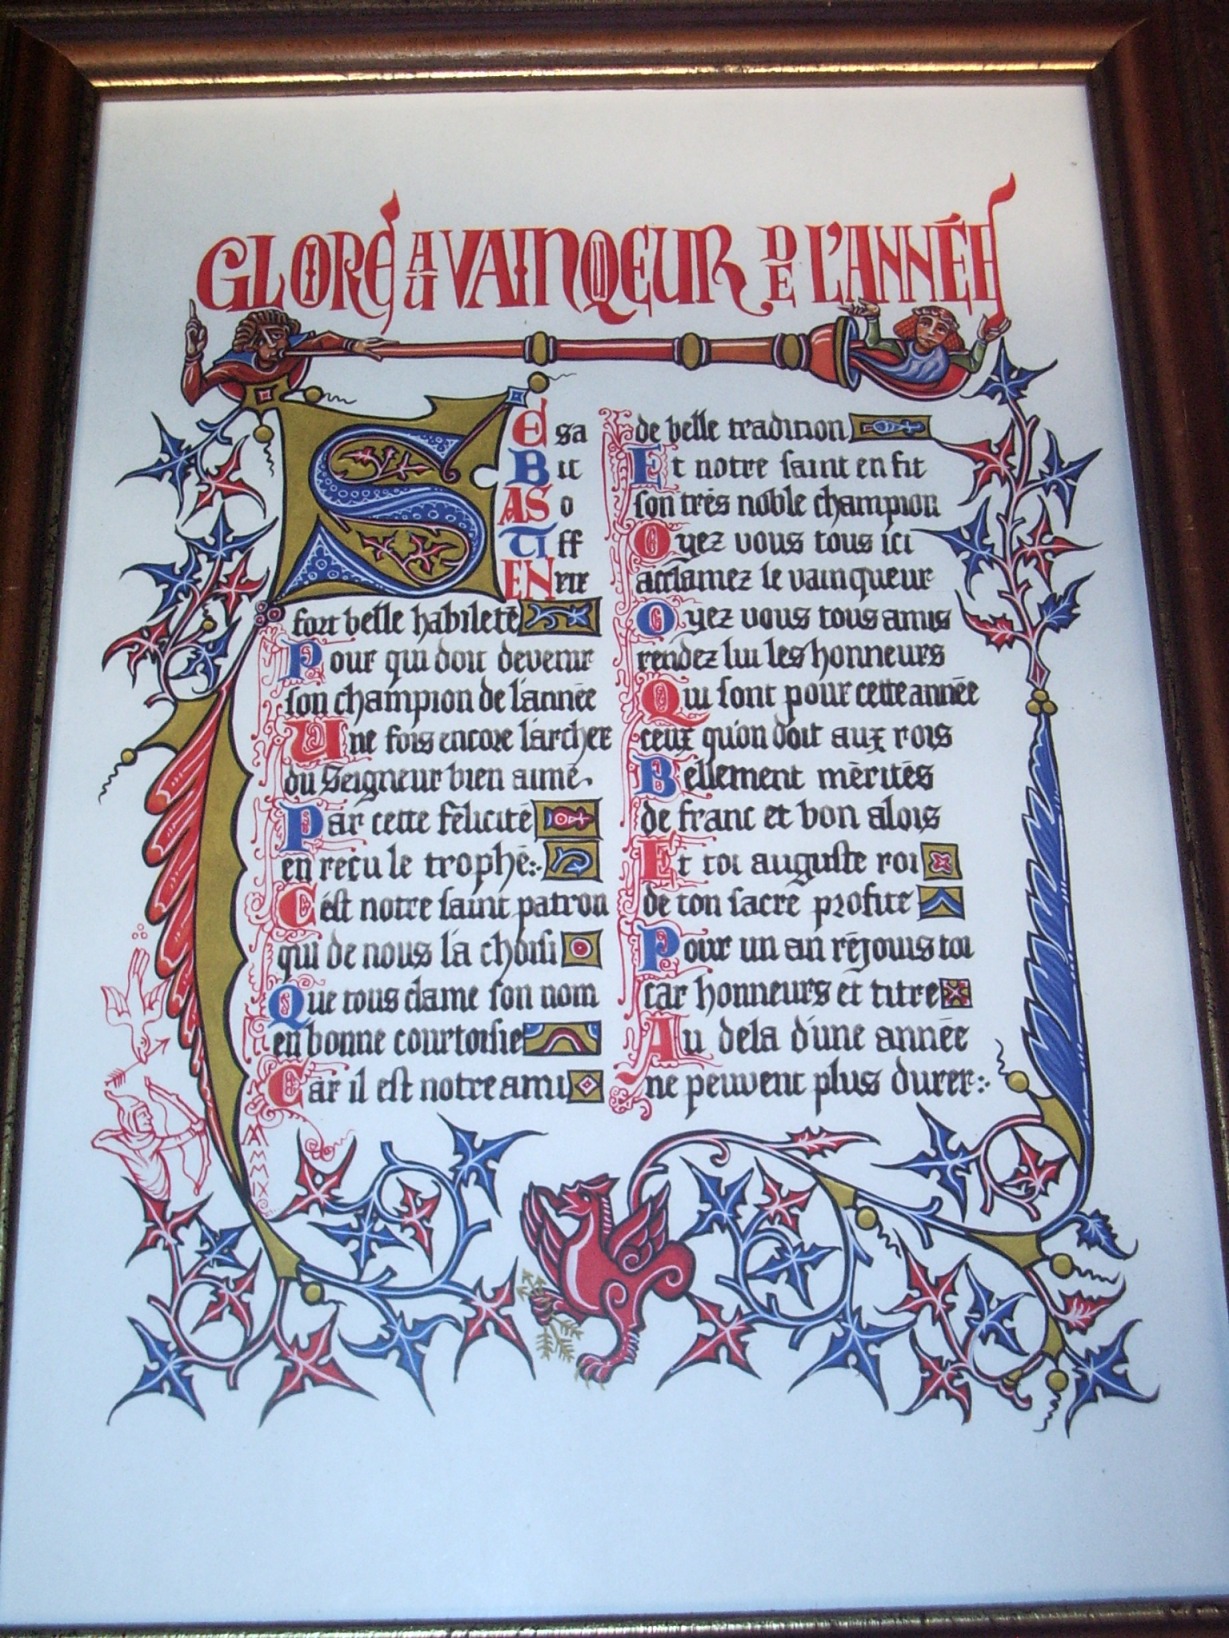 GLOIRE AU VAINQUEUR DE L'ANNÉE
S E sa
B it
AS o
TI ff
EN rir
fort belle habileté
Pour qui doit devenir
son champion de l'année
Une fois encore l'archer
du Seigneur bien aimé
Par cette félicité
en reçu le trophé
C'est notre saint patron
qui de nous l'a choisi
Que tous clame son nom
en bonne courtoisie
Car il est notre ami
de belle tradition
Et notre saint en fit
son très noble champion
Oyez vous tous ici
acclamez le vainqueur
Oyez vous tous amis
rendez lui les honneurs
Qui sont pour cette année
ceux qu'on doit aux rois
Bellement mérités
de franc et bon alois
Et toi auguste roi
de ton sacre profite
Pour un an réjouis toi
car honneurs et titre
Au dela d'une année
ne peuvent plus durer
MMIX